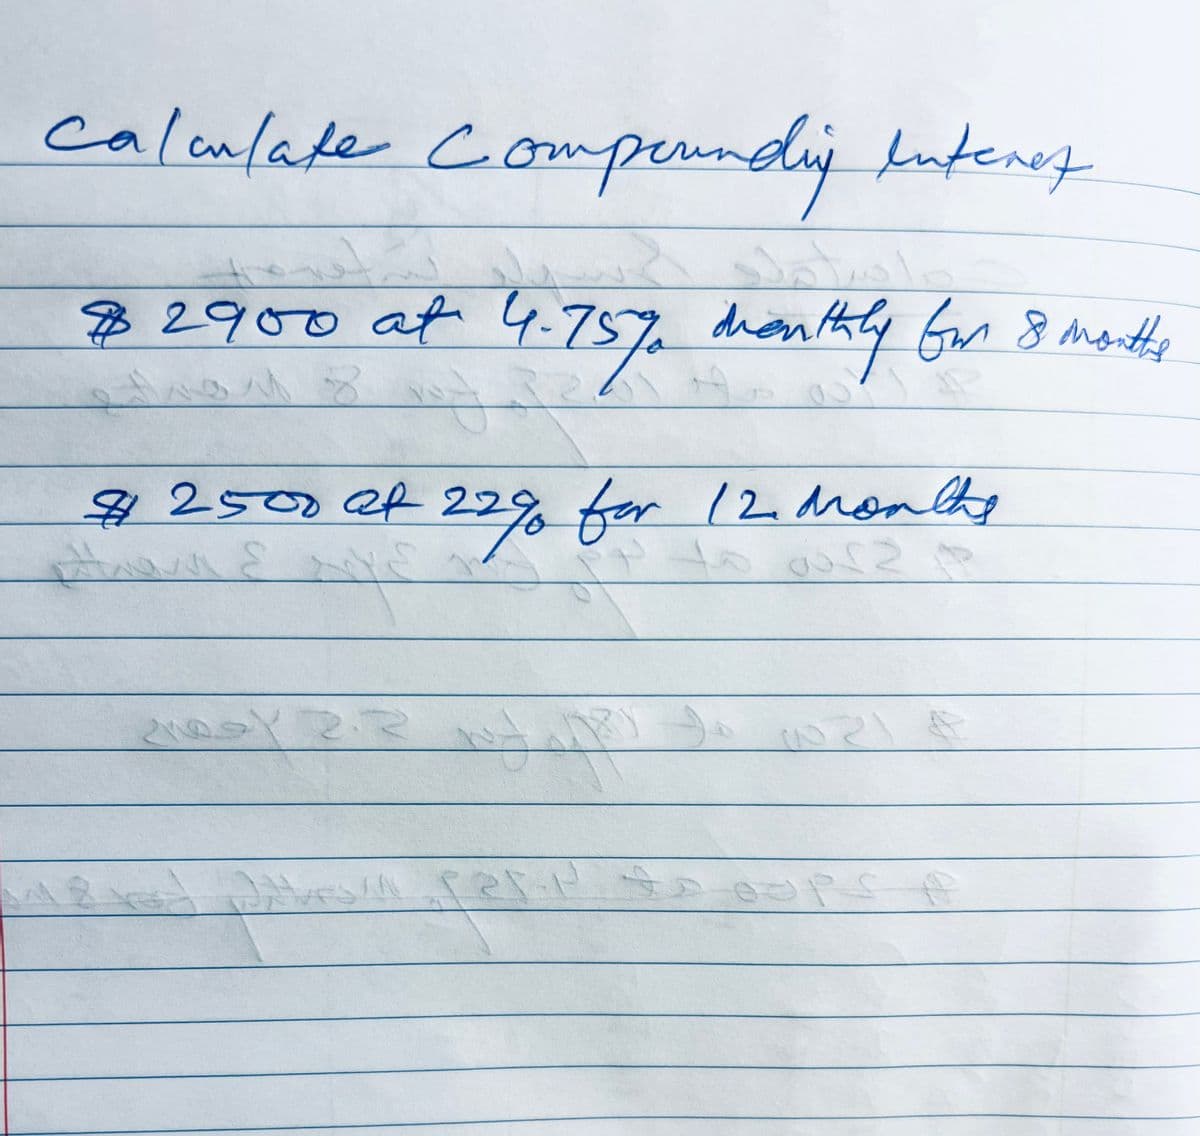 Calculate Compounding Interest
$ 2900 at 4.75% monthly for 8 months
$ 2500 at 22% for 12 months